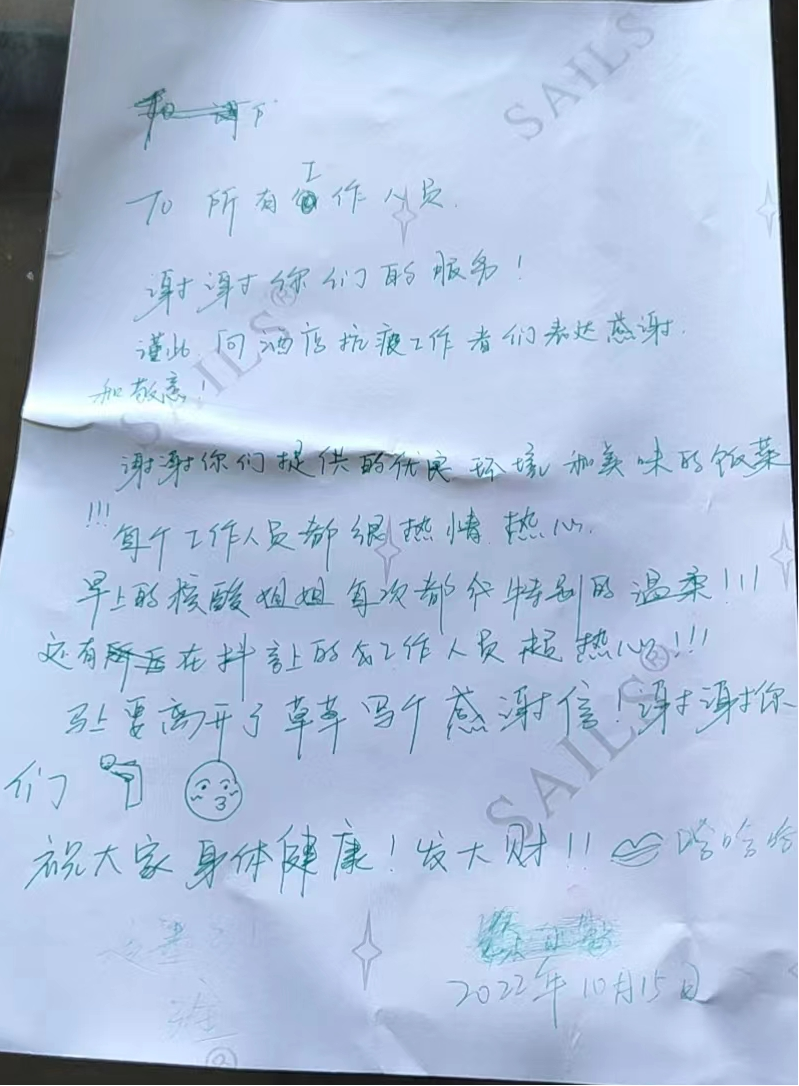 SAILS
TO 所有工作人员.
谢谢你们的服务!
谨此向酒店抗疫工作者们表达感谢.
和敬意!
SAILS®
谢谢你们提供的优良环境和美味的饭菜
!!! 每个工作人员都很热情热心.
早上的核酸姐姐每次都特别的温柔!!!
还有在抖音上的工作人员超热心!!!
马上要离开了草草写个感谢信!谢谢你
们
SAILS®
祝大家身体健康!发大财!!哈哈哈
2022年10月15日